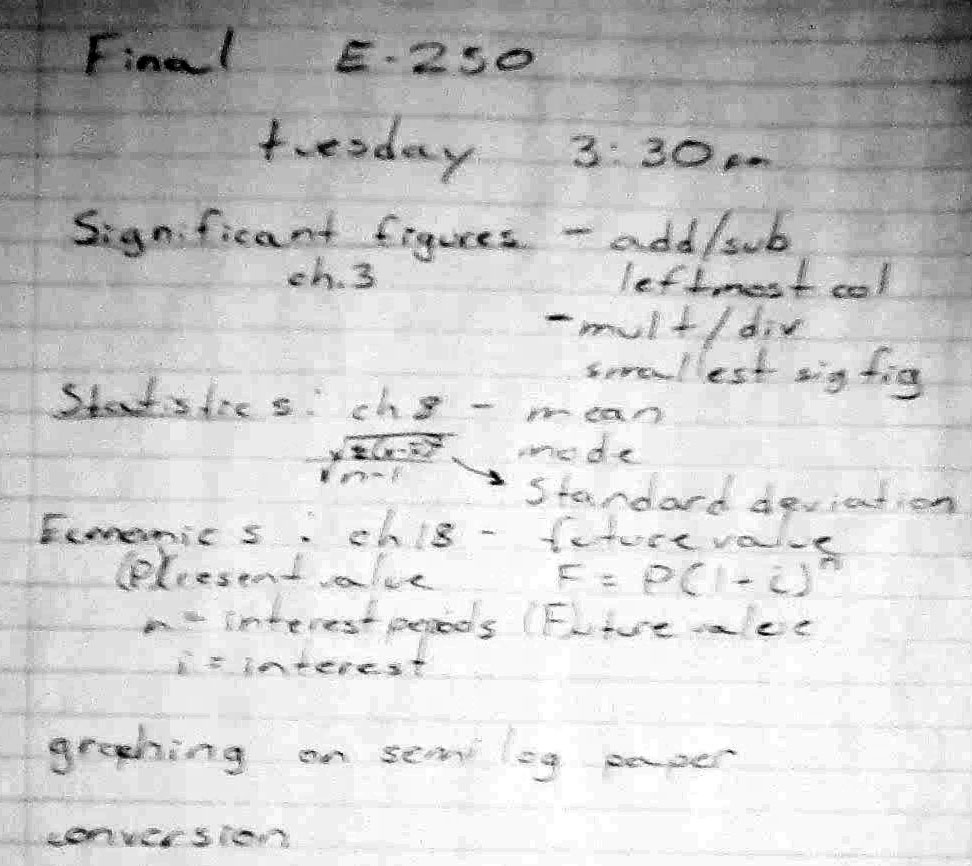 Final E-250
tuesday 3:30 pm
Significant figures - add/sub
ch.3 leftmost col
- mult/div
smallest sig fig
Statistics: ch 8 - mean
√Σ(x-x̄)² mode
√n-1 Standard deviation
Economics : ch 18 - future value
(P)resent value F = P(1-i)ⁿ
n = interest periods (F)uture value
i = interest
graphing on semi log paper
conversion